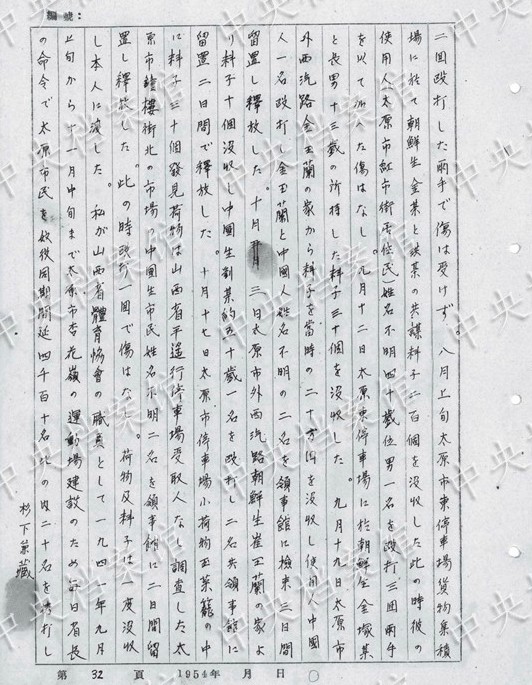 編號:
二回殴打した両手で傷は受けず。八月上旬太原市東停車場貨物集積
場に於て朝鮮生金某と鉄某の共謀料子二百個を没収した此の時彼の
使用人(太原市紅市街居住民)姓名不明四十歳位男一名を殴打三回両手
を以て加へた傷はなし。九月十二日太原東停車場に於朝鮮生金塚某
と長男十三歳の所持した料子三十個を没収した。九月十九日太原市
外西汽路金玉蘭の家から料子を當時の二十万円を没収し使用人中國
人一名殴打し金玉蘭と中國人姓名不明の二名を領事館に検束三日間
留置し釋放した。十月三日太原市外西汽路朝鮮生崔玉蘭の家よ
り料子十個没収し中國生劉某約五十歳一名を殴打し二名共領事館に
留置二日間で釋放した。十月十七日太原市停車場小荷物玉菜籠の中
に料子三十個發見荷物は山西省平遙行停車場受取人なし調査した太
原市鐘樓街北の市場の中國生市民姓名不明二名を領事館に二日間留
置し釋放した。此の時殴打一回で傷はなし。荷物及料子は一度没収
し本人に渡した。私が山西省體育協會の職員として一九四一年九月
上旬から十一月中旬まで太原市杏花嶺の運動場建設のため毎日省長
の命令で太原市民を奴役同期間延四千百十名此の内二十名を殴打し
杉下兼蔵
第 32 頁 1954年 月 日
中央档案馆